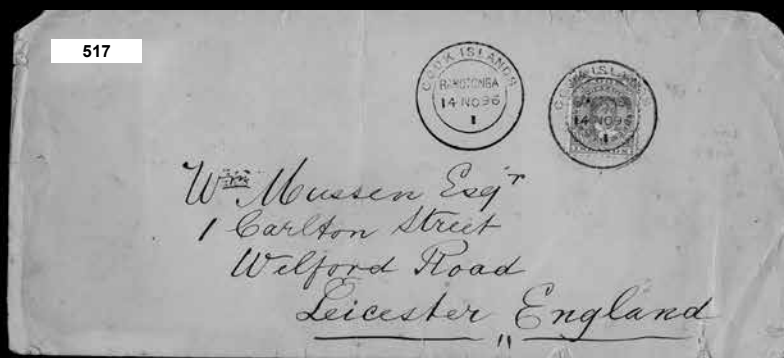 517
COOK ISLANDS
RAROTONGA
14 NO 96
1
COOK ISLANDS
14 NO 96
1
Wm Mussen Esqr
1 Carlton Street
Welford Road
Leicester, England